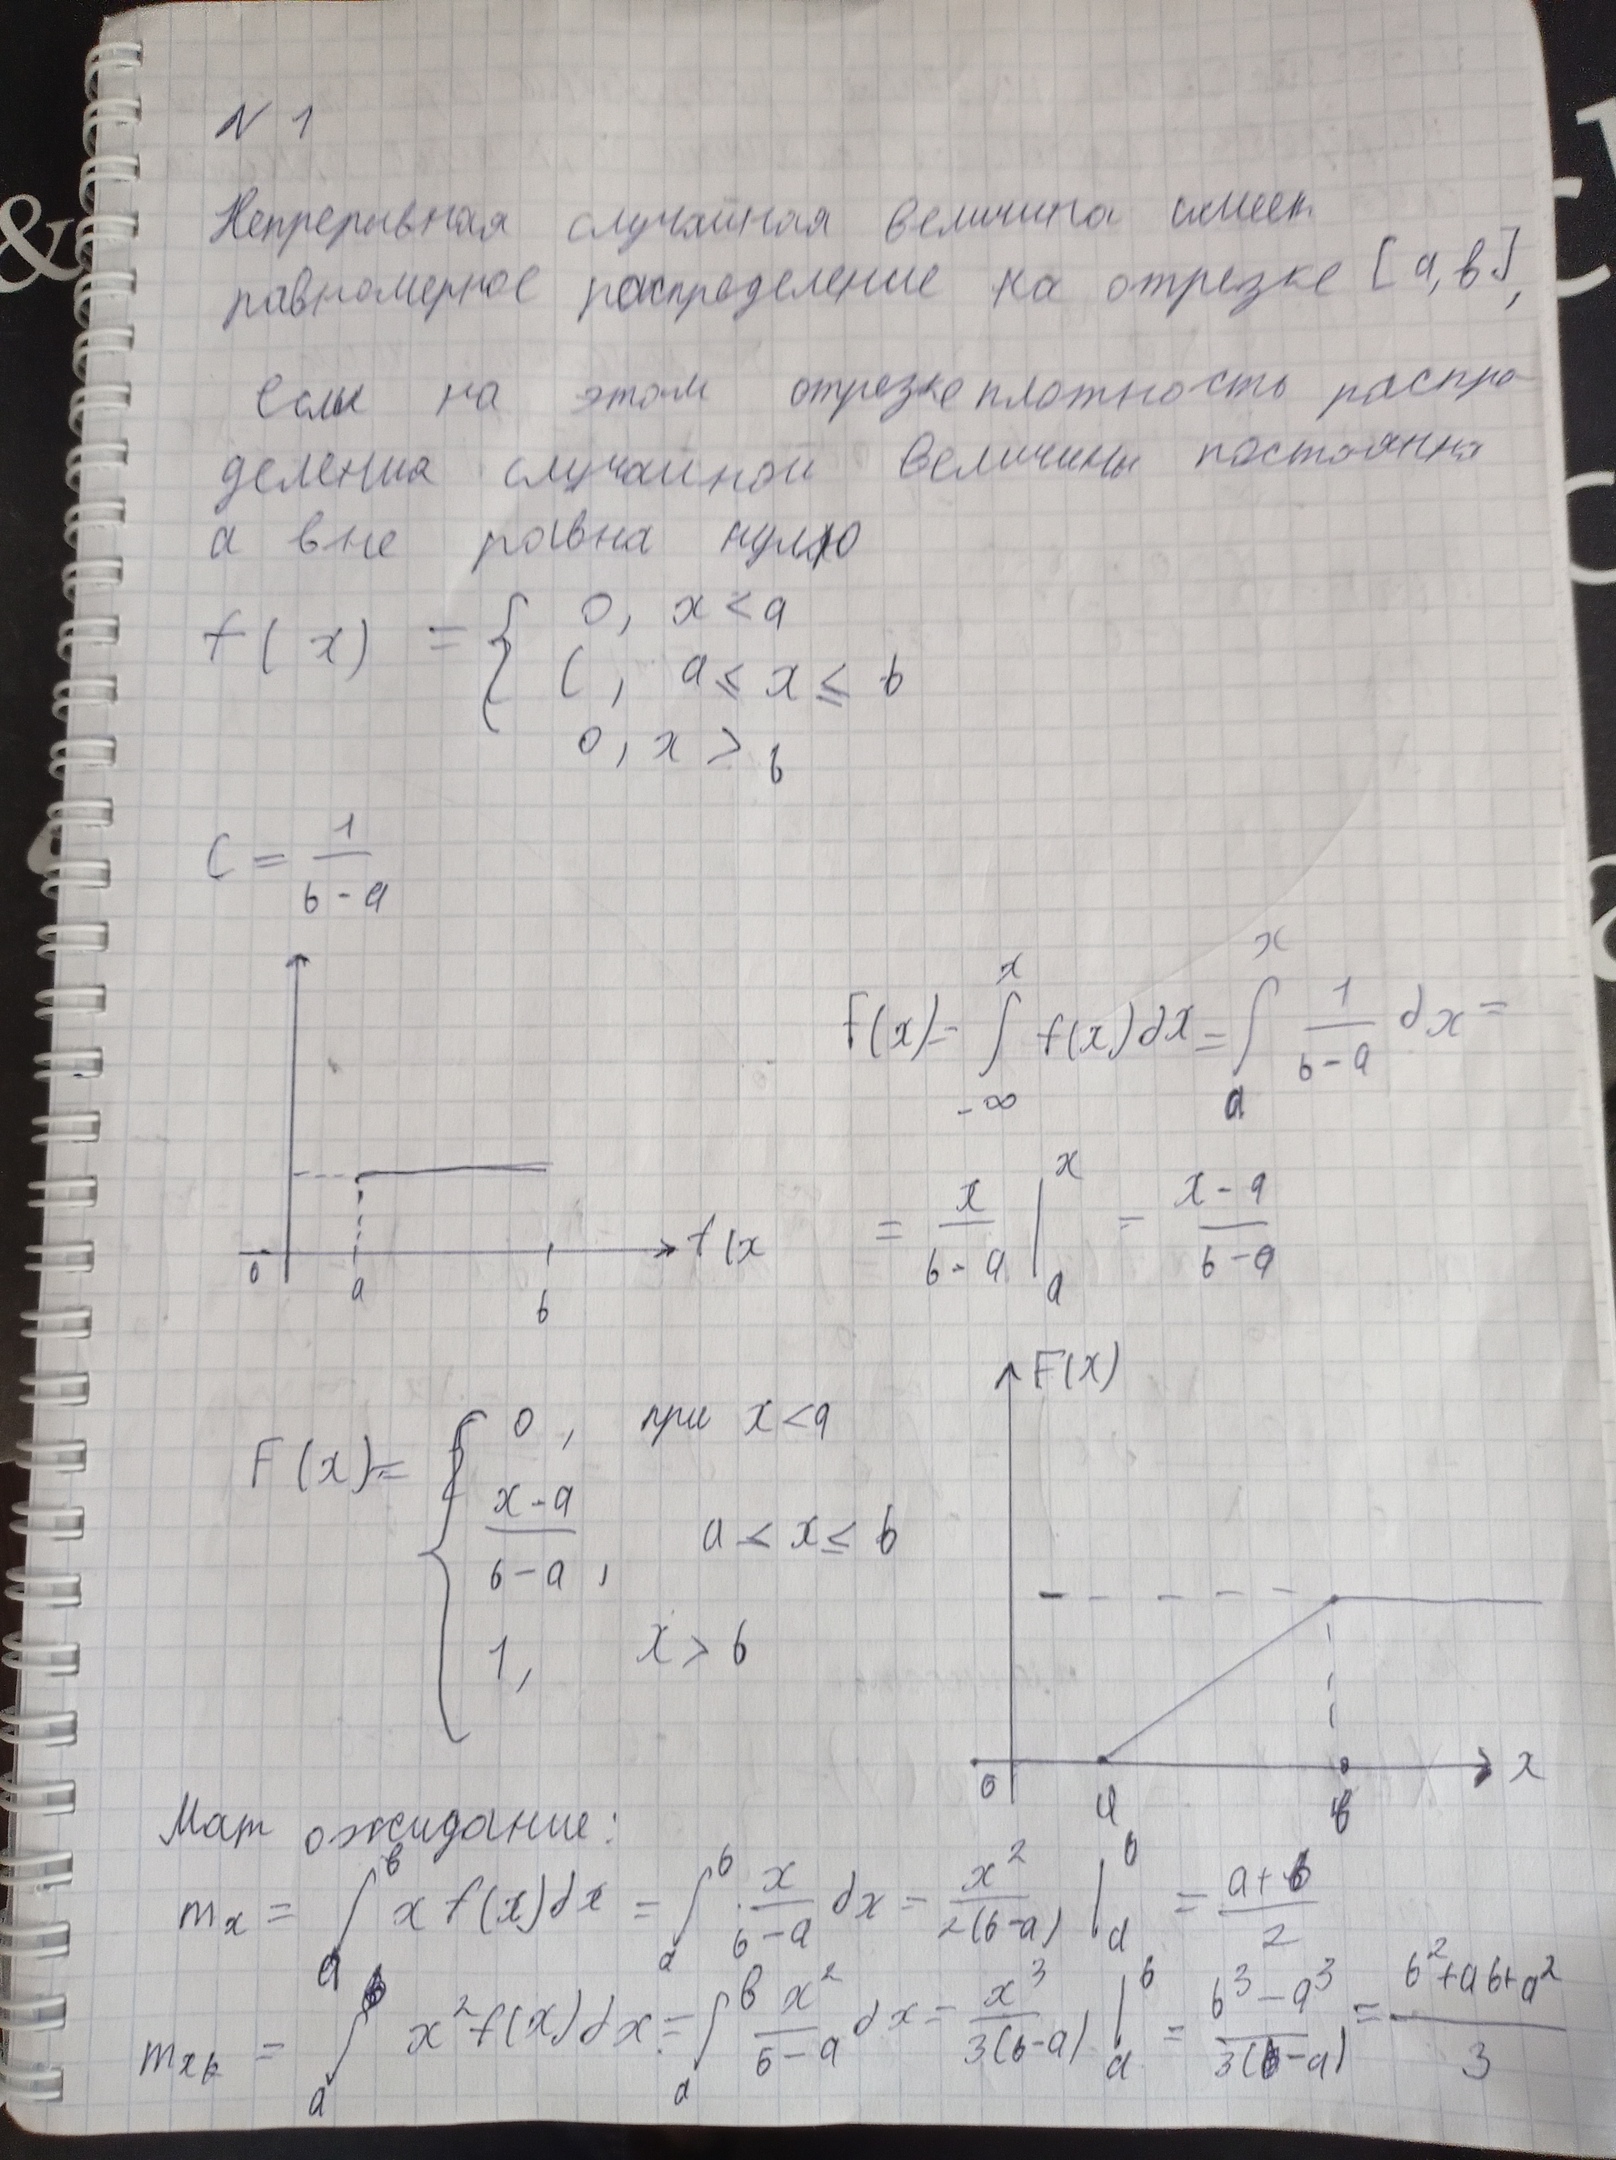 N 1
Непрерывная случайная величина имеет
равномерное распределение на отрезке [a, b],
если на этом отрезке плотность распре
деления случайной величины постоянна
а вне равна нулю
f(x) = { 0, x < a
C, a ≤ x ≤ b
0, x > b
C = 1/(b - a)
F(x) = ∫_{-∞}^{x} f(x)dx = ∫_{a}^{x} 1/(b-a) dx =
= x/(b-a) |_{a}^{x} = (x-a)/(b-a)
f(x
0 a b
F(x)
F(x) = { 0, при x < a
(x-a)/(b-a), a < x ≤ b
1, x > b
0 a b x
Мат ожидание:
m_x = ∫_{a}^{b} x f(x)dx = ∫_{a}^{b} x/(b-a) dx = x^2/(2(b-a)) |_{a}^{b} = (a+b)/2
= ∫_{a}^{b} x^2 f(x)dx = ∫_{a}^{b} x^2/(b-a) dx = x^3/(3(b-a)) |_{a}^{b} = (b^3-a^3)/(3(b-a)) = (b^2+ab+a^2)/3